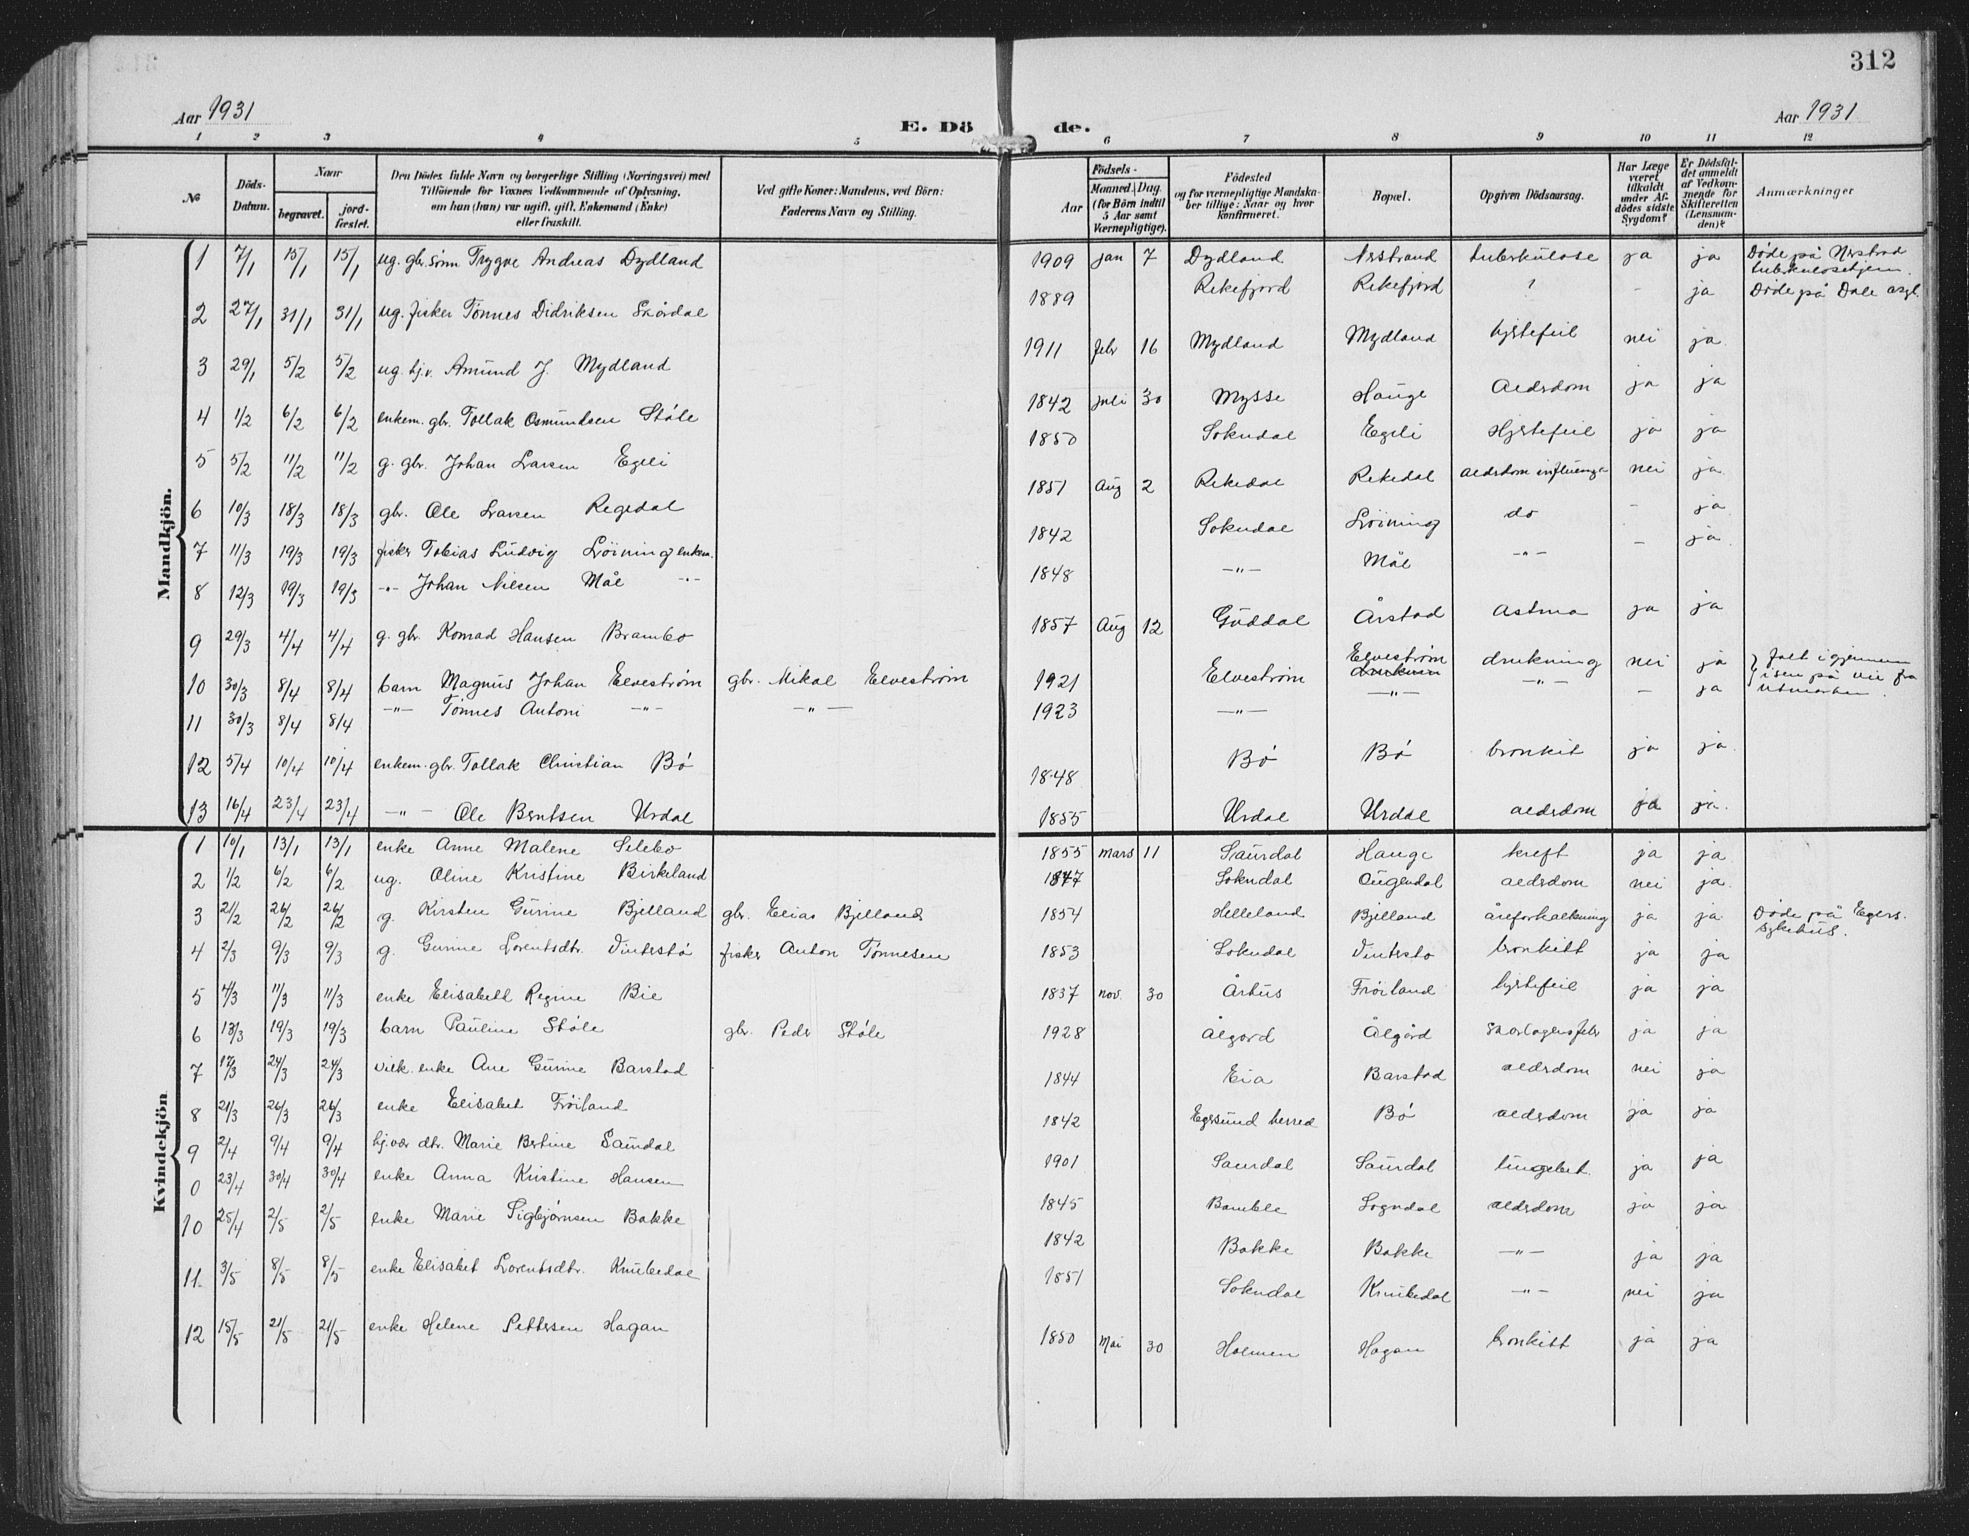 312
Aar 1931
E. Dö de.
Aar 1931
1 2 3 4 5 6 7 8 9 10 11 12
№
Döds-Datum.
Naar
begravet.
jord-fæstet.
Den Dödes fulde Navn og borgerlige Stilling (Næringsvei) med
Tilföiende for Voxnes Vedkommende af Oplysning,
om han (hun) var ugift, gift, Enkemand (Enke)
eller fraskilt.
Ved gifte Koner: Mandens, ved Börn:
Faderens Navn og Stilling.
Födsels-
Aar
Maaned. Dag.
(for Börn indtil
5 Aar samt
Værnepligtige).
Födested
og for værnepligtige Mandska-
ber tillige: Naar og hvor
konfirmeret.
Bopæl.
Opgiven Dödsaarsag.
Har Læge
været
tilkaldt
under Af-
dödes sidste
Sygdom?
Er Dödsfal-
det anmeldt
af Vedkom-
mende for
Skifteretten
(Lensman-
den)?
Anmærkninger
Mandkjön.
1 7/1 15/1 15/1 ug. gbr. sønn Trygve Andreas Dydland 1909 jan 7 Dydland Årstrand tuberkulose ja ja Døde på Nerstrad tuberkulosehjem.
2 27/1 31/1 31/1 ug. fisker Tønnes Didriksen Skårdal 1889 Rekefjord Rekefjord ? - ja Døde på Dale asyl.
3 29/1 5/2 5/2 ug. hj.v. Amund J. Mydland 1911 febr 16 Mydland Mydland hjertefeil nei ja
4 1/2 6/2 6/2 enkem. gbr. Tollak Osmundsen Støle 1842 juli 30 Mysse Hauge aldrdom ja ja
5 5/2 11/2 11/2 g. gbr. Johan Larsen Egeli 1850 Sokndal Egeli Hjertefeil ja ja
6 10/3 18/3 18/3 gbr. Ole Larsen Regedal 1851 Aug 2 Rekedal Rekedal aldrdom influenza nei ja
7 11/3 19/3 19/3 fisker Tobias Ludvig Løining enkem. 1842 Sokndal Løining do - ja
8 12/3 19/3 19/3 -"- Johan Nilsen Mål -"- 1848 -"- Mål -"- - ja
9 29/3 4/4 4/4 g. gbr. Konrad Hansen Brambo 1857 Aug 12 Guddal Årstad astma ja ja
10 30/3 8/4 8/4 barn Magnus Johan Elvestrøm gbr. Mikal Elvestrøm 1921 Elvestrøm Elvestrøm drukning nei ja } Falt igjennem isen på vei fra utmarken.
11 30/3 8/4 8/4 -"- Tønnes Antoni -"- -"- 1923 -"- -"- -"- - ja
12 5/4 10/4 10/4 enkem. gbr. Tollak Christian Bø 1848 Bø Bø bronkit ja ja
13 16/4 23/4 23/4 -"- Ole Berntsen Urdal 1855 Urdal Urdal aldrdom ja ja
Kvindekjön
1 10/1 13/1 13/1 enke Anne Malene Selebø 1855 mars 11 Saurdal Hauge kreft ja ja
2 1/2 6/2 6/2 ug. Oline Kristine Birkeland 1847 Sokndal Øugendal aldrdom nei ja
3 21/2 26/2 26/2 g. Kirsten Gurine Bjelland gbr. Elias Bjelland 1854 Helleland Bjelland åreforkalkning ja ja Døde på Egers. sykehus.
4 2/3 9/3 9/3 g. Gurine Lorentsdtr. Vinterstø fisker Anton Tønnesen 1853 Sokndal Vinterstø bronkitt ja ja
5 4/3 11/3 11/3 enke Elisabett Regine Bie 1837 nov. 30 Århus Frøiland hjertefeil ja ja
6 13/3 19/3 19/3 barn Pauline Støle gbr. Peder Støle 1928 Ålgård Ålgård skarlagensfebr ja ja
7 17/3 24/3 24/3 vilk. enke Ane Gurine Barstad 1844 Eia Barstad aldrdom nei ja
8 21/3 26/3 26/3 enke Elisabet Frøiland 1842 Egersund herred Bø aldrdom ja ja
9 2/4 9/4 9/4 hj.vær. dtr. Marie Bertine Saurdal 1901 Saurdal Saurdal lungebet. ja ja
0 23/4 30/4 30/4 enke Anna Kristine Hansen 1845 Bamble Sogndal aldrdom ja ja
10 25/4 2/5 2/5 enke Marie Sigbjørnsen Bakke 1842 Bakke Bakke -"- ja ja
11. 3/5 8/5 8/5 enke Elisabet Lorentsdtr. Knubedal 1851 Sokndal Knubedal -"- nei ja
12 15/5 21/5 21/5 enke Helene Pettersen Hagan 1850 Mai 30 Holmen Hagan bronkitt ja ja